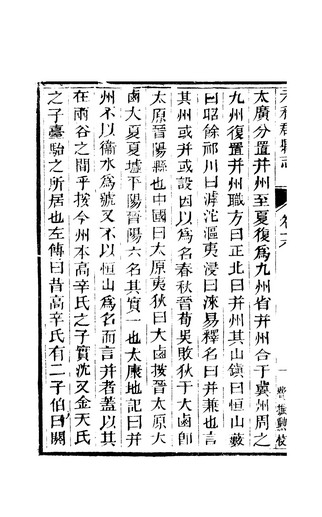 元和郡縣志 卷十六 一
太廣分置并州至夏復爲九州省并州合于冀州周之
九州復置并州職方曰正北曰并州其山鎮曰恒山藪
曰昭餘祁川曰滹沱漚夷浸曰淶易釋名曰并兼也言
其州或并或設因以爲名春秋晉荀吳敗狄于大鹵師
太原晉陽縣也中國曰太原夷狄曰大鹵按晉太原大
鹵大夏夏墟平陽晉陽六名其實一也太康地記曰并
州不以衞水爲號又不以恒山爲名而言并者蓋以其
在雨谷之間乎按今州本高辛氏之子實沈又金天氏
之子臺駘之所居也左傳曰昔高辛氏有二子伯曰閼